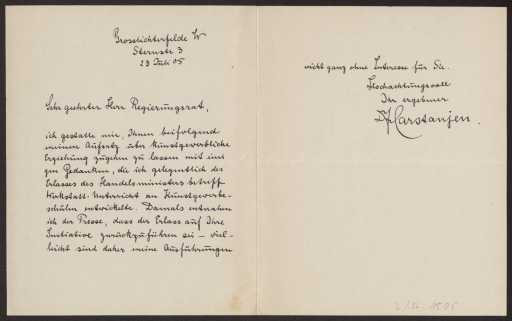 Grosslichterfelde W
Sternstr 3
23 Juli 05
Sehr geehrter Herr Regierungsrat,
ich gestatte mir, Ihnen beifolgend
meinen Aufsatz über kunstgewerbliche
Erziehung zugehn zu lassen mit eini
gen Gedanken, die ich gelegentlich des
Erlasses des Handelsministers betreff
Werkstatt-Unterricht an Kunstgewerbe-
schulen entwickelte. Damals entnahm
ich der Presse, dass der Erlass auf Ihre
Initiative zurückzuführen sei – viel-
leicht sind daher meine Ausführungen
nicht ganz ohne Interesse für Sie.
Hochachtungsvoll
Ihr ergebener
Carstanjen.